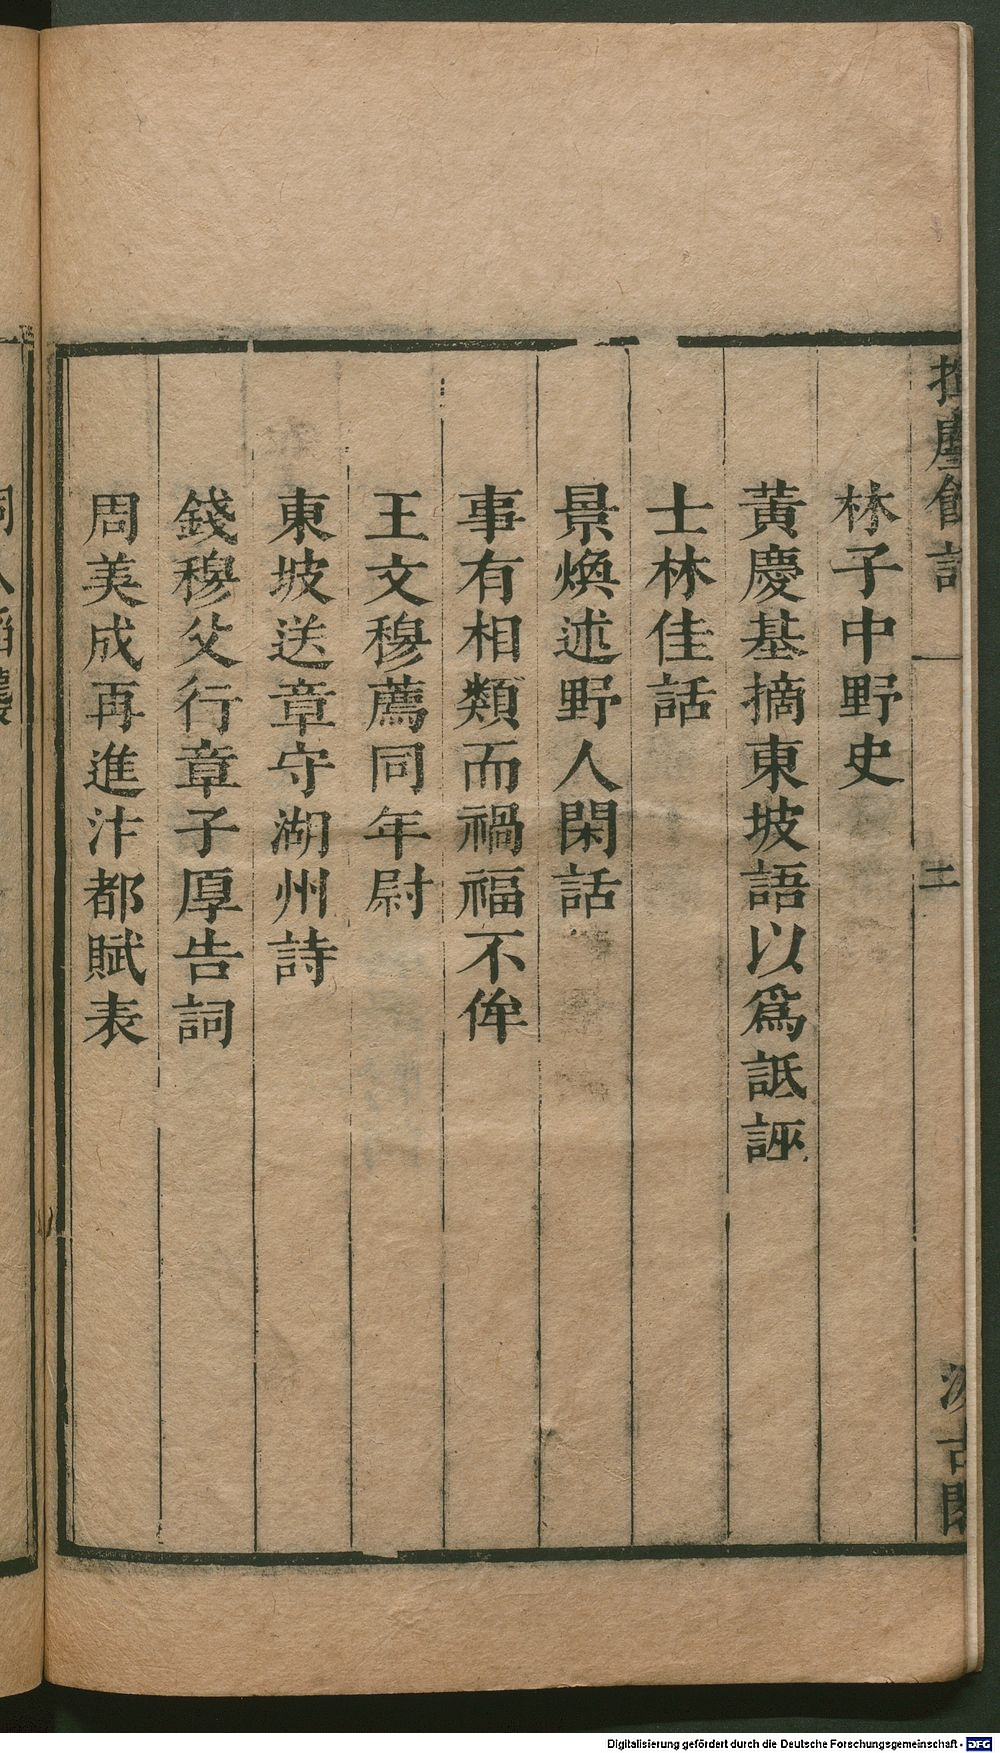 揮麈餘話 一 二 汲古閣
林子中野史
黃慶基摘東坡語以爲詆誣
士林佳話
景煥述野人閑話
事有相類而禍福不侔
王文穆薦同年尉
東坡送章守湖州詩
錢穆父行章子厚告詞
周美成再進汴都賦表
Digitalisierung gefördert durch die Deutsche Forschungsgemeinschaft - DFG